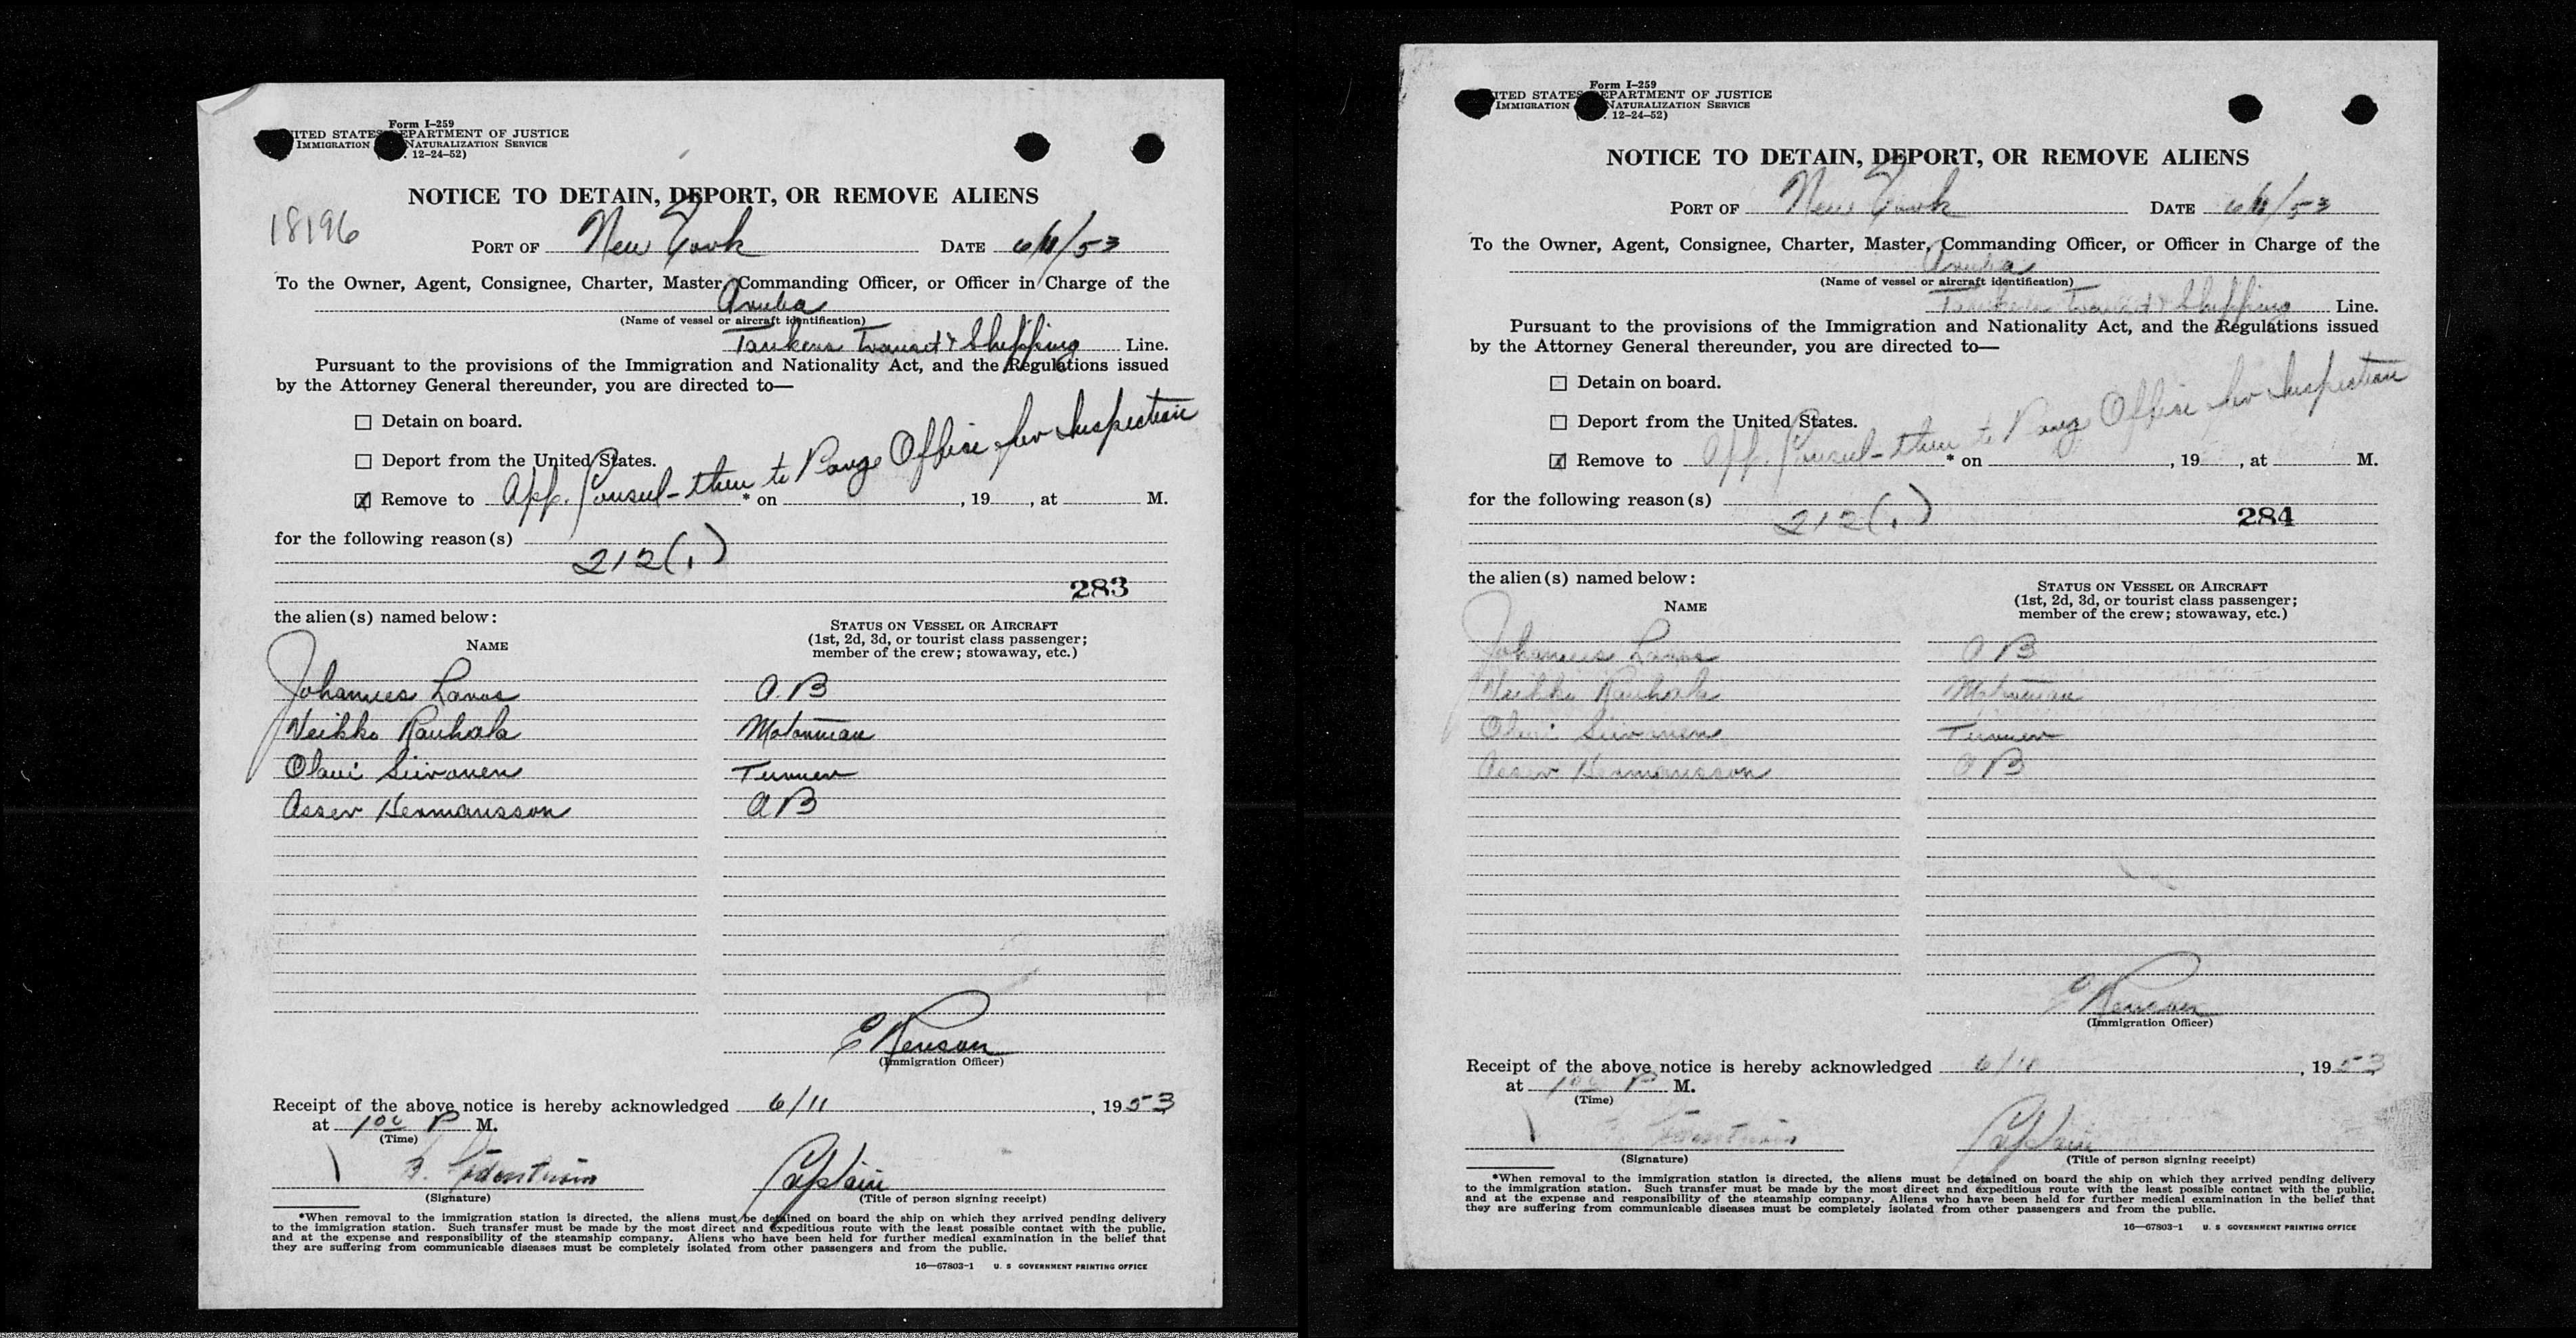 Form I-259
ITED STATES EPARTMENT OF JUSTICE
IMMIGRATION NATURALIZATION SERVICE
12-24-52)
NOTICE TO DETAIN, DEPORT, OR REMOVE ALIENS
18196
PORT OF New York DATE 6/11/53
To the Owner, Agent, Consignee, Charter, Master, Commanding Officer, or Officer in Charge of the
Aruba
(Name of vessel or aircraft identification)
Tankers Transit & Shipping Line.
Pursuant to the provisions of the Immigration and Nationality Act, and the Regulations issued
by the Attorney General thereunder, you are directed to—
☐ Detain on board.
☐ Deport from the United States.
☒ Remove to App. Consul - then to Office for Inspection * on , 19 , at M.
for the following reason(s)
212(1)
283
the alien(s) named below:
NAME
STATUS ON VESSEL OR AIRCRAFT
(1st, 2d, 3d, or tourist class passenger;
member of the crew; stowaway, etc.)
Johannes Lanos A.B
Veikko Rauhala Motorman
Olavi Siivonen Turner
Asser Hermansson AB
E Renson
(Immigration Officer)
Receipt of the above notice is hereby acknowledged 6/11, 1953
at 1 00 P M.
(Time)
(Signature)
Captain
(Title of person signing receipt)
*When removal to the immigration station is directed, the aliens must be detained on board the ship on which they arrived pending delivery
to the immigration station. Such transfer must be made by the most direct and expeditious route with the least possible contact with the public,
and at the expense and responsibility of the steamship company. Aliens who have been held for further medical examination in the belief that
they are suffering from communicable diseases must be completely isolated from other passengers and from the public.
16—67803-1 U. S GOVERNMENT PRINTING OFFICE
Form I-259
ITED STATES EPARTMENT OF JUSTICE
IMMIGRATION NATURALIZATION SERVICE
12-24-52)
NOTICE TO DETAIN, DEPORT, OR REMOVE ALIENS
PORT OF New York DATE 6/11/53
To the Owner, Agent, Consignee, Charter, Master, Commanding Officer, or Officer in Charge of the
Aruba
(Name of vessel or aircraft identification)
Tankers Transit & Shipping Line.
Pursuant to the provisions of the Immigration and Nationality Act, and the Regulations issued
by the Attorney General thereunder, you are directed to—
☐ Detain on board.
☐ Deport from the United States.
☒ Remove to App. Consul - then to Office for Inspection * on , 19 , at M.
for the following reason(s)
212(1)
284
the alien(s) named below:
NAME
STATUS ON VESSEL OR AIRCRAFT
(1st, 2d, 3d, or tourist class passenger;
member of the crew; stowaway, etc.)
Johannes Lanos A B
Veikko Rauhala Motorman
Olavi Siivonen Turner
Asser Hermansson A B
E Renson
(Immigration Officer)
Receipt of the above notice is hereby acknowledged 6/11, 1953
at 1 00 P M.
(Time)
(Signature)
Captain
(Title of person signing receipt)
*When removal to the immigration station is directed, the aliens must be detained on board the ship on which they arrived pending delivery
to the immigration station. Such transfer must be made by the most direct and expeditious route with the least possible contact with the public,
and at the expense and responsibility of the steamship company. Aliens who have been held for further medical examination in the belief that
they are suffering from communicable diseases must be completely isolated from other passengers and from the public.
16—67803-1 U. S GOVERNMENT PRINTING OFFICE